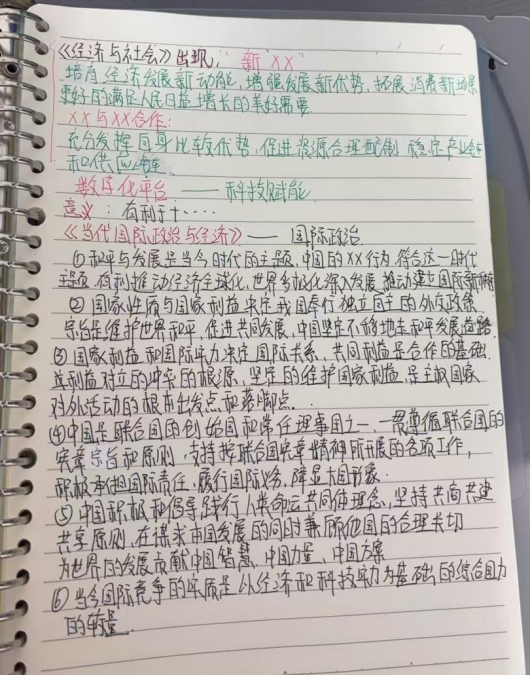 《经济与社会》出现，"新XX"
培育经济发展新动能，增强发展新优势，拓展消费新场景
更好的满足人民日益增长的美好需要
XX与XX合作：
充分发挥自身比较优势，促进资源合理配制 稳定产业链
和供应链
数字化平台——科技赋能
意义：有利于……
《当代国际政治与经济》——国际政治
①和平与发展是当今时代的主题，中国的XX行为，符合这一时代
主题，有利推动经济全球化，世界多极化深入发展，推动建立国际新秩序
②国家性质与国家利益决定我国奉行独立自主的外交政策
宗旨是维护世界和平，促进共同发展，中国坚定不移地走和平发展道路
③国家利益和国际实力决定国际关系，共同利益是合作的基础
利益对立的冲突的根源，坚定的维护国家利益，是主权国家
对外活动的根本出发点和落脚点．
④中国是联合国的创始国和常任理事国之一，一贯遵循联合国的
宪章宗旨和原则，支持按联合国宪章精神所开展的各项工作，
积极承担国际责任，履行国际义务，彰显大国形象．
⑤中国积极和倡导践行人类命运共同体理念，坚持共商共建
共享原则，在谋求本国发展的同时兼顾他国的合理关切
为世界的发展贡献中国智慧、中国力量、中国方案
⑥当今国际竞争的实质是以经济和科技实力为基础的综合国力
的较量